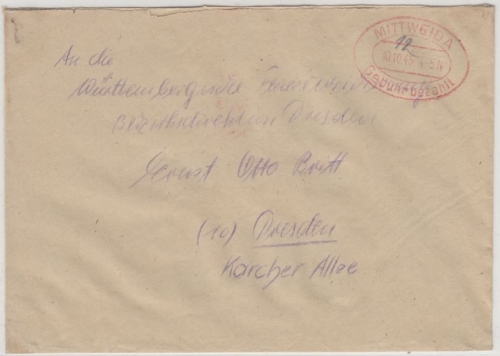 MITTWEIDA
12
10.10.45
Gebühr bezahlt
An die
Württembergische Feuerversicherung
Bezirksdirektion Dresden
Ernst Otto
(10) Dresden
Karcher Allee